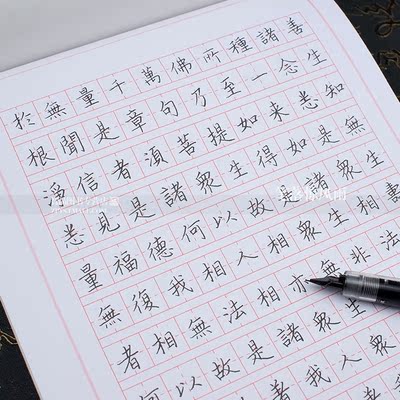 於無量千萬佛所種諸善
根聞是章句乃至一念生
淨信者須菩提如来悉知
悉見是諸衆生得如是無
量福德何以故是諸衆生
無復我相人相衆生相壽
者相無法相亦無非法
何以故是諸衆生
著我人衆